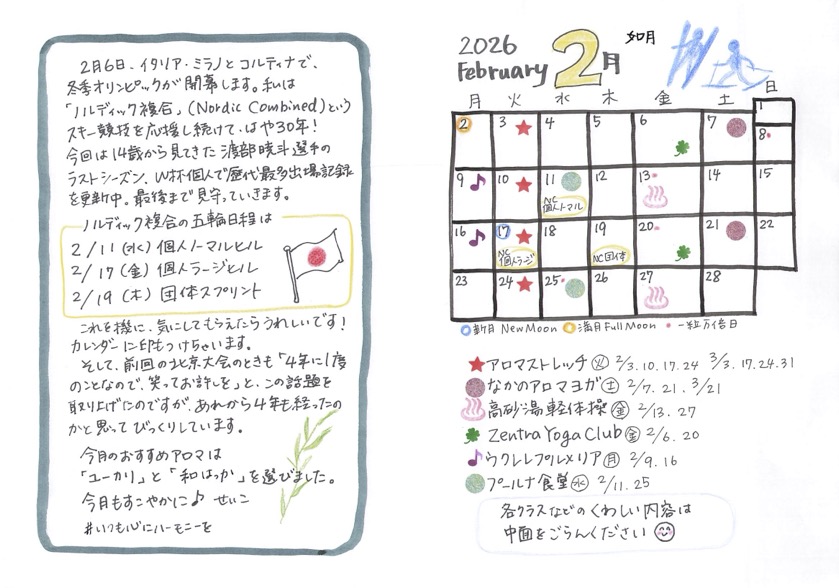 2月6日、イタリア・ミラノとコルティナで、
冬季オリンピックが開幕します。私は
「ノルディック複合」(Nordic Combined)という
スキー競技を応援し続けて、はや30年!
今回は14歳から見てきた渡部暁斗選手の
ラストシーズン、W杯個人で歴代最多出場記録
を更新中。最後まで見守っていきます。
ノルディック複合の五輪日程は
2/11(水)個人ノーマルヒル
2/17(金)個人ラージヒル
2/19(木)団体スプリント
これを機に、気にしてもらえたらうれしいです!
カレンダーに印もつけちゃいます。
そして、前回の北京大会のときも「4年に1度
のことなので、笑ってお許しを」と、この話題を
取り上げたのですが、あれから4年も経ったの
かと思ってびっくりしています。
今月のおすすめアロマは
「ユーカリ」と「和はっか」を選びました。
今月もすこやかに♪ せいこ
#いつも心にハーモニーを
2026
February 2月
如月
月 火 水 木 金 土 日
1
2 3 4 5 6 7 8
9 10 11 12 13 14 15
NC
個人ノーマル
16 17 18 19 20 21 22
NC
個人ラージ
NC団体
23 24 25 26 27 28
新月 New Moon 満月 Full Moon 一粒万倍日
★アロマストレッチ(火) 2/3.10.17.24 3/3.17.24.31
なかのアロマヨガ(土) 2/7.21. 3/21
♨高砂湯 軽体操(金) 2/13.27
Zentra Yoga Club(金) 2/6.20
♪ウクレレプルメリア(月) 2/9.16
プールナ食堂(水) 2/11.25
各クラスなどのくわしい内容は
中面をごらんください